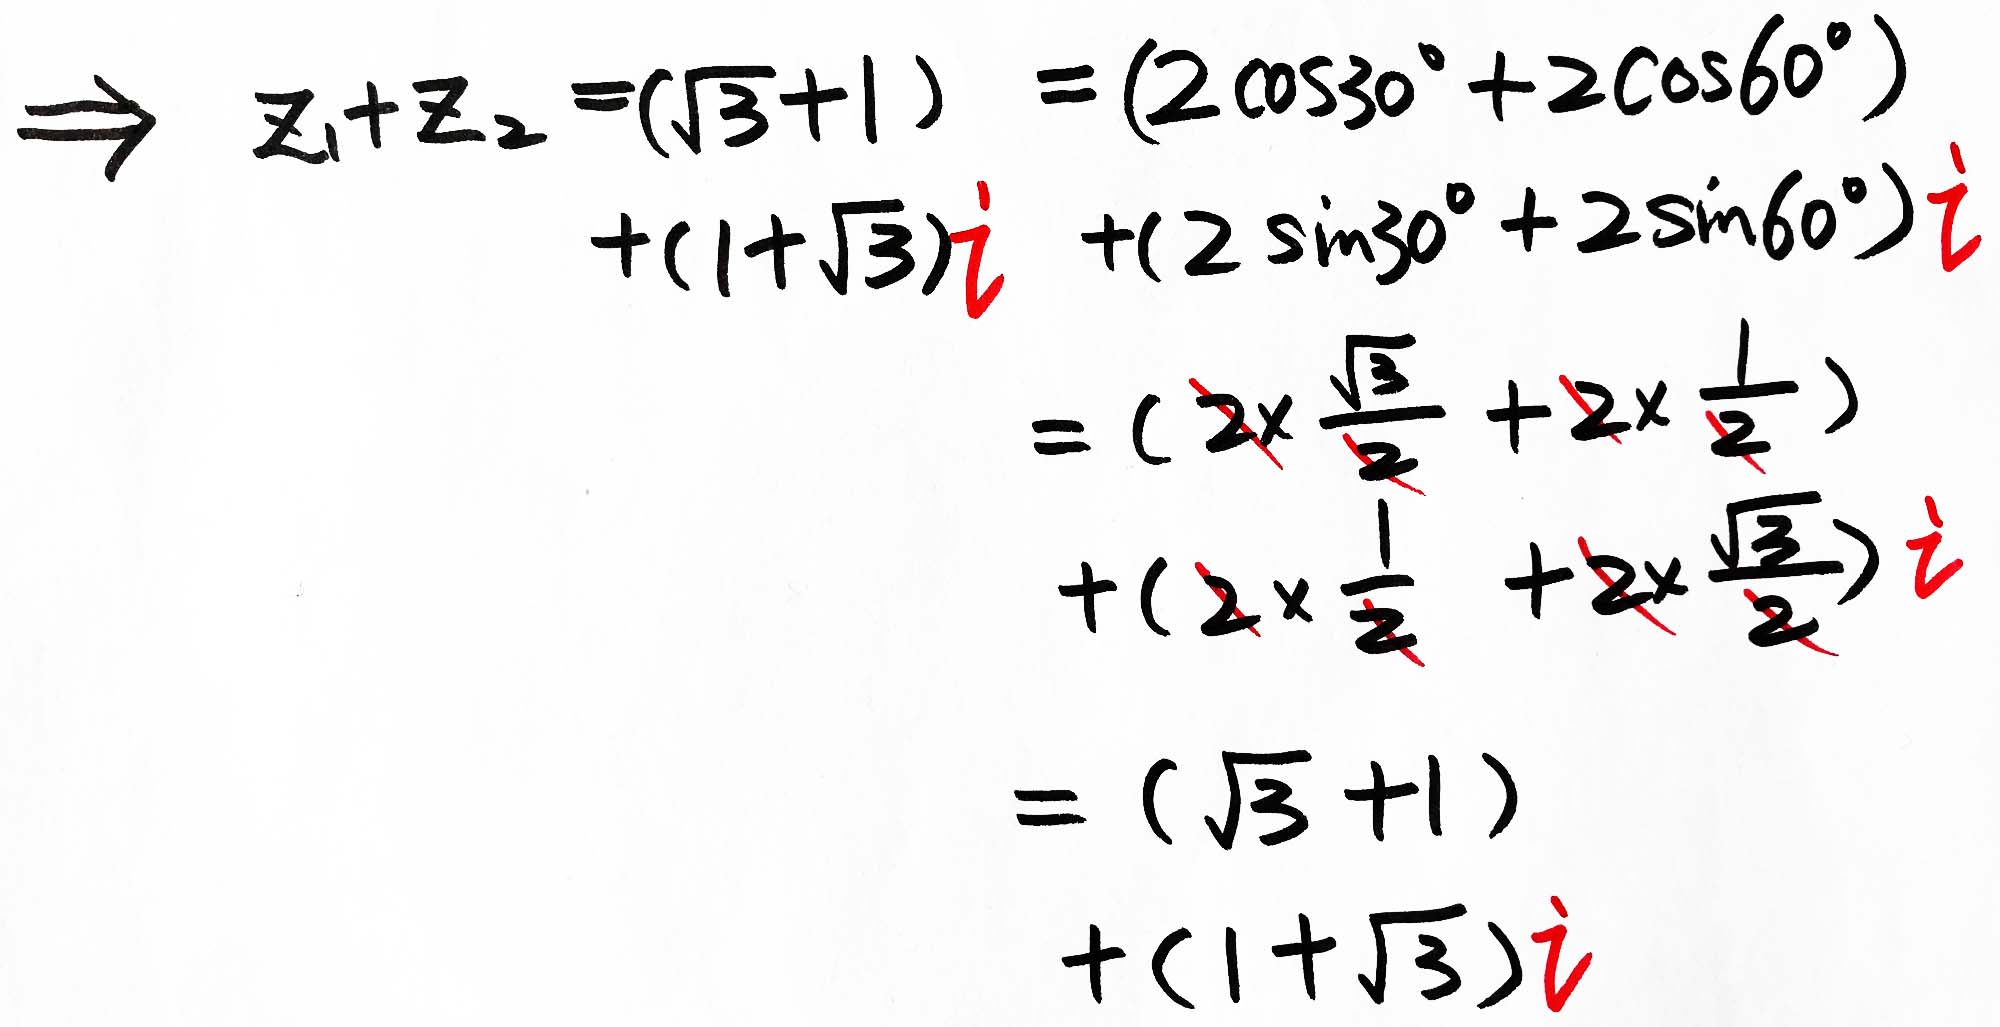 ⇒ z₁+z₂ =(√3+1) =(2cos30°+2cos60°)
+(1+√3)i +(2sin30°+2sin60°)i
=(2×√3/2+2×1/2)
+(2×1/2+2×√3/2)i
=(√3+1)
+(1+√3)i